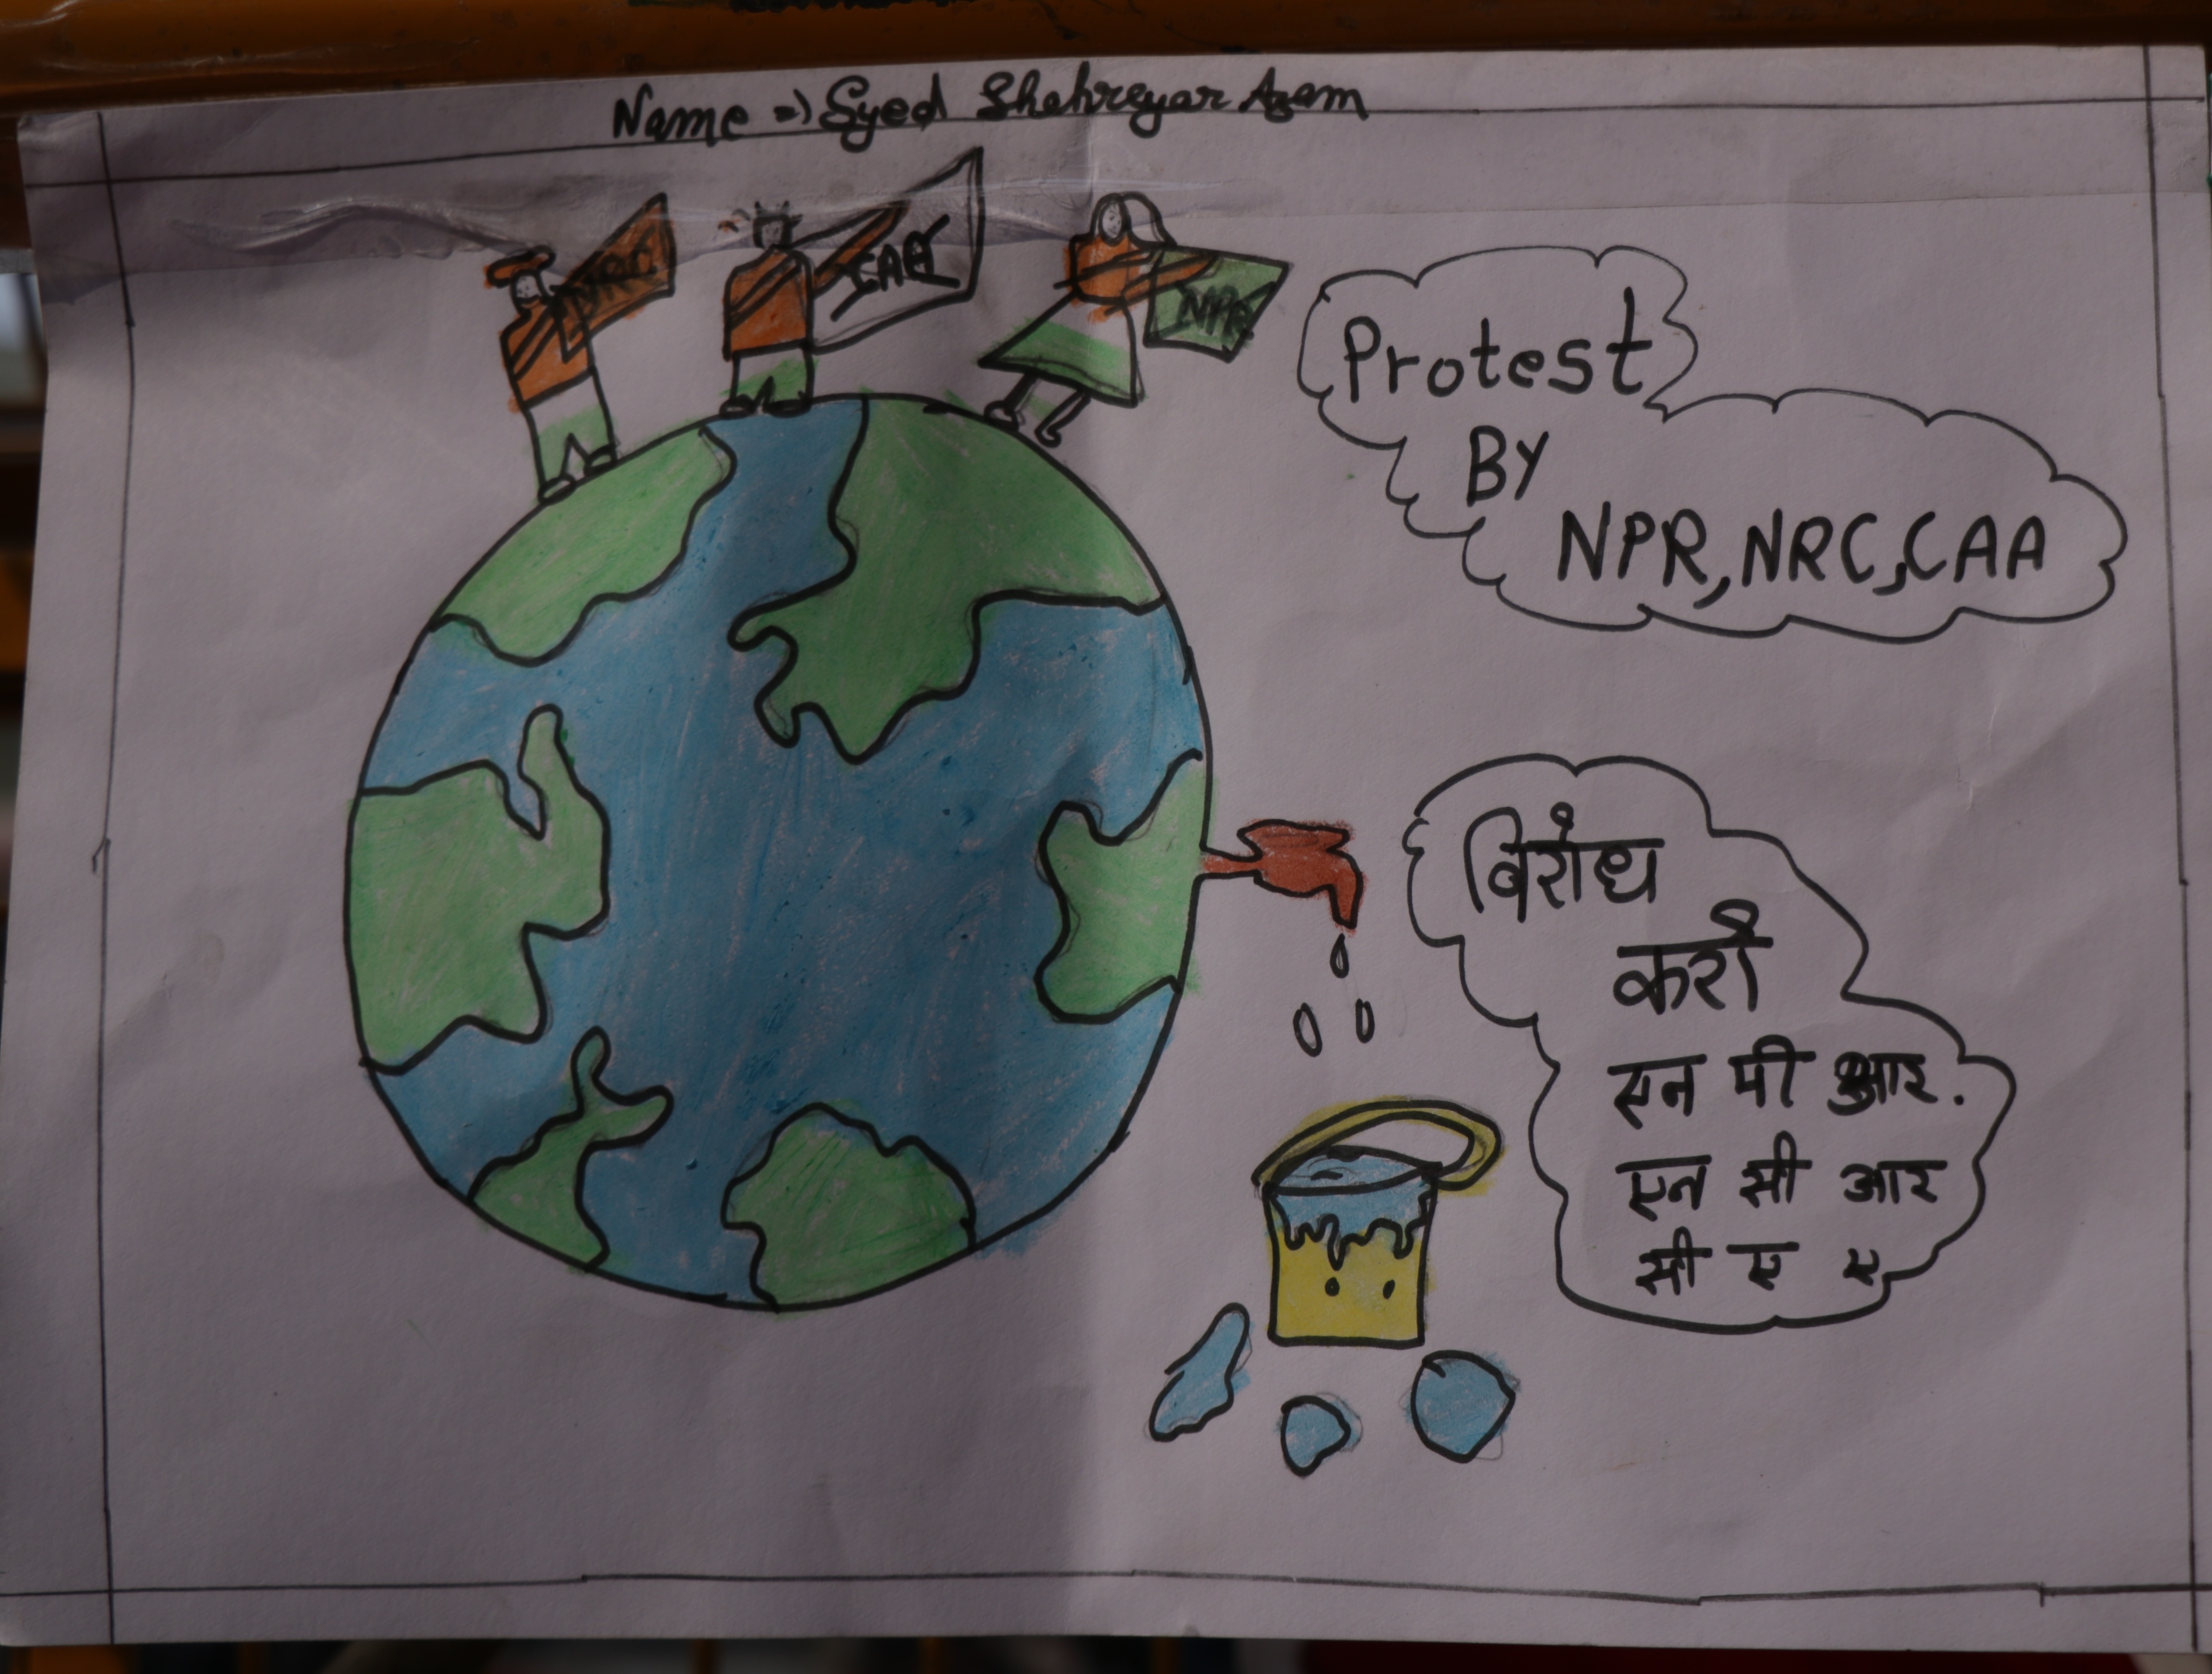 Name => Syed Shehreyar Azam
NRC
CAA
NPR
Protest
BY
NPR, NRC, CAA
विरोध
करो
एन पी आर.
एन सी आर
सी ए ए